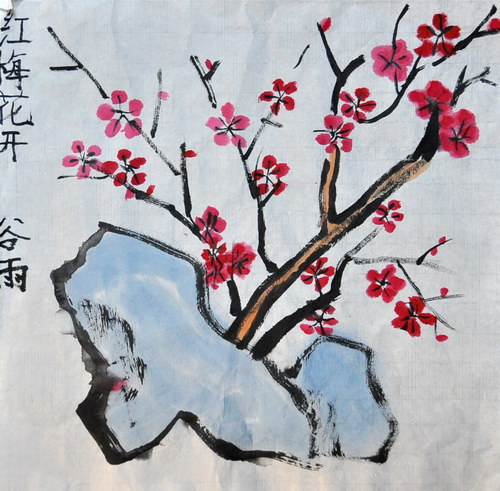 红梅花开
谷雨